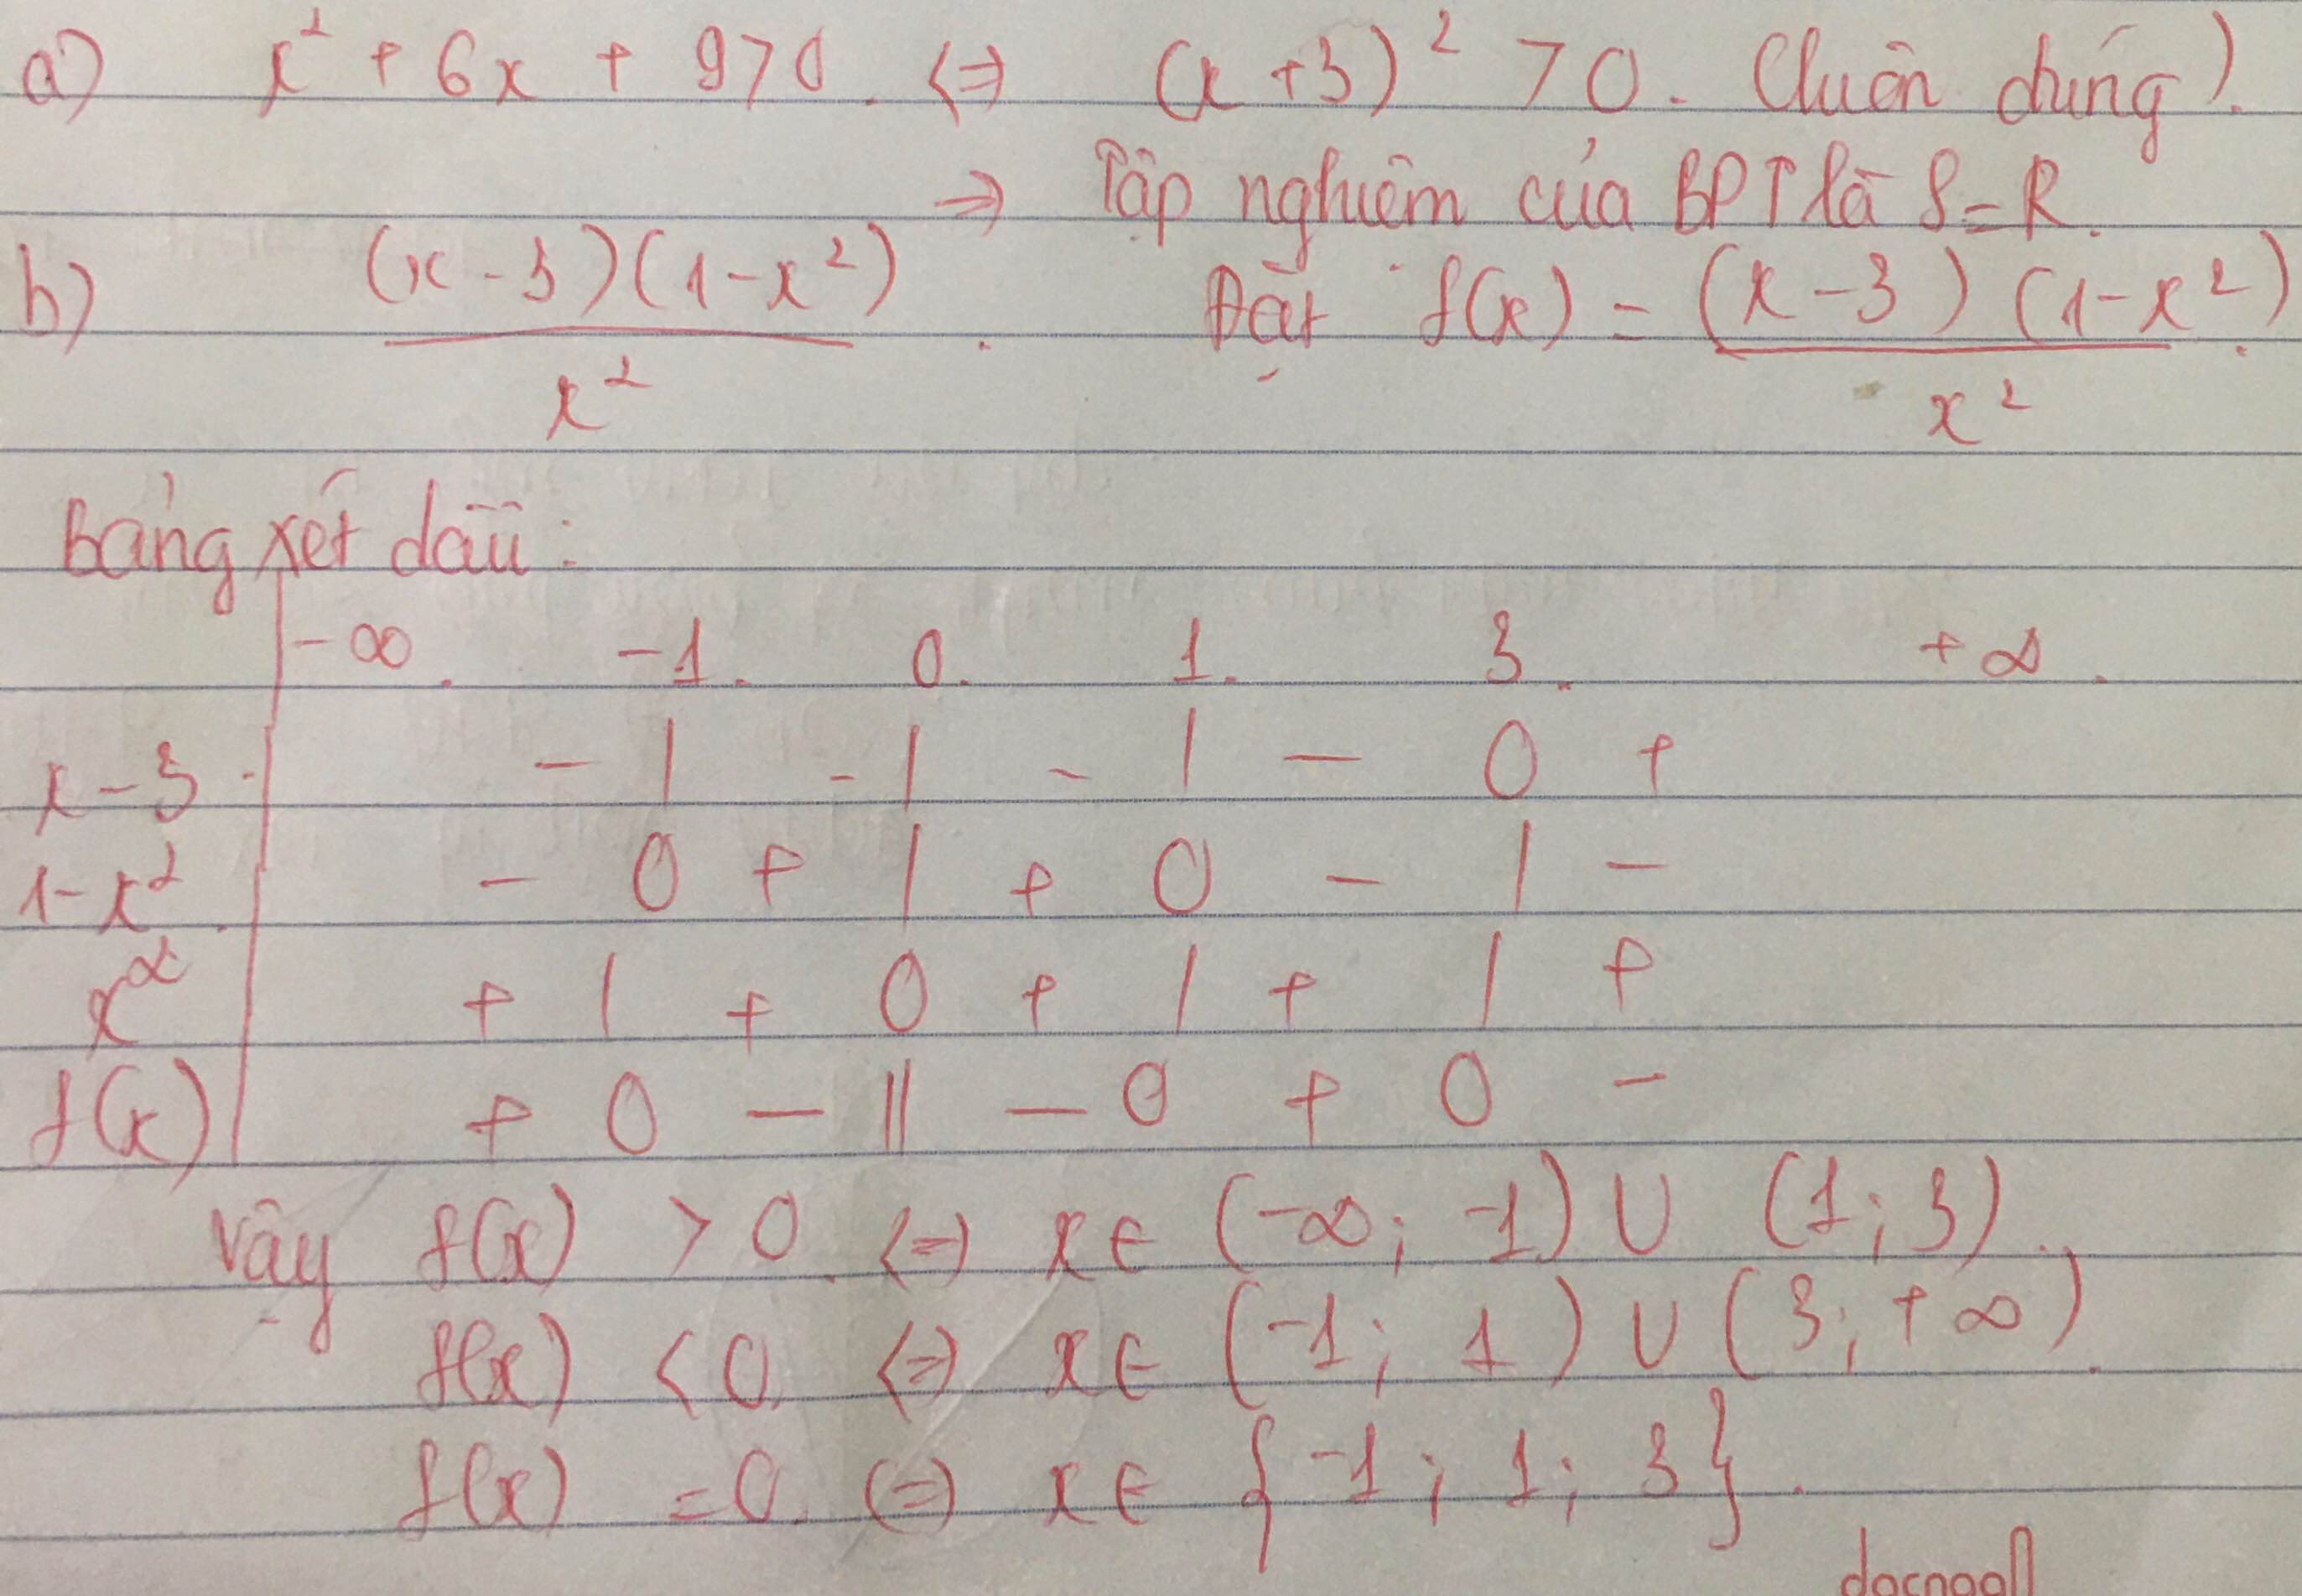 a) x² + 6x + 9 > 0. <=> (x + 3)² > 0. (luôn đúng).
=> Tập nghiệm của BPT là S = R.
b) (x - 3)(1 - x²) / x² . Đặt f(x) = (x - 3)(1 - x²) / x² .
Bảng xét dấu:
-∞. -1. 0. 1. 3. +∞.
x - 3 - | - | - | - 0 +
1 - x² - 0 + | + 0 - | -
x² + | + 0 + | + | +
f(x) + 0 - || - 0 + 0 -
Vậy f(x) > 0. <=> x ∈ (-∞; -1) ∪ (1; 3).
f(x) < 0 <=> x ∈ (-1; 1) ∪ (3; +∞).
f(x) = 0. <=> x ∈ {-1; 1; 3}.